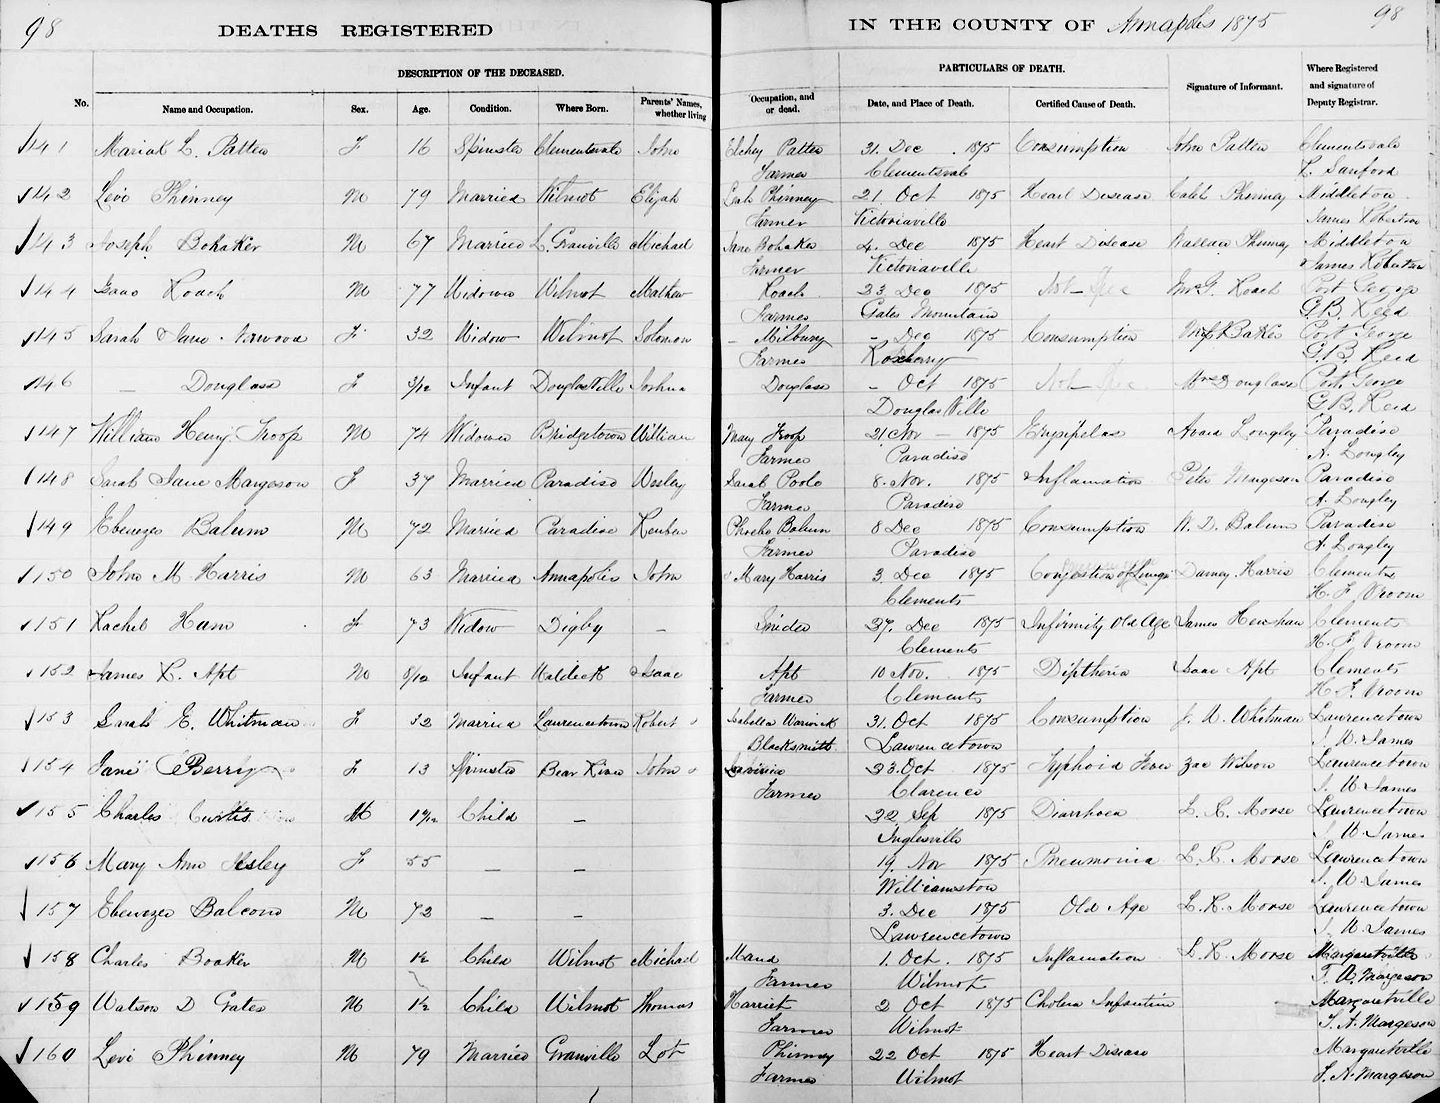 98 DEATHS REGISTERED IN THE COUNTY OF Annapolis 1875 98
DESCRIPTION OF THE DECEASED. PARTICULARS OF DEATH.
No. Name and Occupation. Sex. Age. Condition. Where Born. Parents' Names, whether living Occupation, and or dead. Date, and Place of Death. Certified Cause of Death. Signature of Informant. Where Registered and signature of Deputy Registrar.
141 Mariah L. Patten F 16 Spinster Clementsvale John Patten 31 Dec 1875 Consumption John Patten Clementsvale
Farmer Clementsvale L. Sanford
142 Levi Phinney M 79 Married Wilmot Elijah Phinney 21 Oct 1875 Heart Disease Caleb Phinney Middleton
Farmer Victoriaville James Robertson
143 Joseph Bohaker M 67 Married L. Granville Michael Jane Bohaker 4 Dec 1875 Heart Disease Wallace Phinney Middleton
Farmer Victoriaville James Robertson
144 Isaac Roach M 77 Widower Wilmot Mathew Roach 23 Dec 1875 Not Spec Roach Port George
Farmer Gates Mountain G. B. Reed
145 Sarah Jane Norwood F 32 Widow Wilmot Solomon – Milbury – Dec 1875 Consumption Baker Port George
Farmer Roxberry G. B. Reed
146 — Douglass F 3/12 Infant Douglasville Joshua Douglass – Oct 1875 Not Spec Mrs Douglass Port George
Douglas Ville G. B. Reed
147 William Henry Troop M 74 Widower Bridgetown William Mary Troop 21 Nov – 1875 Erysipelas Longley Paradise
Farmer Paradise A. Longley
148 Sarah Jane Margeson F 37 Married Paradise Wesley Sarah Poole 8 Nov. 1875 Inflamation Peter Margeson Paradise
Farmer Paradise A. Longley
149 Ebenezer Balum M 72 Married Paradise Reuben Phoebe Balum 8 Dec 1875 Consumption Balum Paradise
Farmer Paradise A. Longley
150 John M Harris M 63 Married Annapolis John Mary Harris 3 Dec 1875 Congestion of Lungs Harris Clements
Clements H. F. Vroom
151 Rachel Ham F 73 Widow Digby – Snider 27 Dec 1875 Infirmity Old Age James Henshaw Clements
Clements H. F. Vroom
152 James R. Apt M 8/12 Infant Waldeck Isaac Apt 10 Nov. 1875 Diptheria Isaac Apt Clements
Farmer Clements H. F. Vroom
153 Sarah E. Whitman F 32 Married Laurencetown Robert Isabella Warwick 31 Oct 1875 Consumption J. W. Whitman Lawrencetown
Blacksmith Lawrencetown J. W. James
154 Jane Berry F 13 Spinster Bear River John Lavinia 23 Oct 1875 Typhoid Fever Zac Wilson Lawrencetown
Farmer Clarence J. W. James
155 Charles Curtis M Child – 22 Sep 1875 Diarrhoea L. R. Morse Lawrencetown
Inglesville J. W. James
156 Mary Ann F 55 – – 19 Nov 1875 Pneumonia L. R. Morse Lawrencetown
Williamston J. W. James
157 Ebenezer Balcom M 72 – – 3 Dec 1875 Old Age L. R. Morse Lawrencetown
Lawrencetown J. W. James
158 Charles Boaker M 1½ Child Wilmot Michael Maria 1 Oct. 1875 Inflamation L. R. Morse Margaretville
Farmer Wilmot T. A. Margeson
159 Watson D Gates M 1½ Child Wilmot Thomas Harriet 2 Oct 1875 Cholera Infantum Margaretville
Farmer Wilmot T. A. Margeson
160 Levi Phinney M 79 Married Granville Lot Phinney 22 Oct 1875 Heart Disease Margaretville
Farmer Wilmot T. A. Margeson